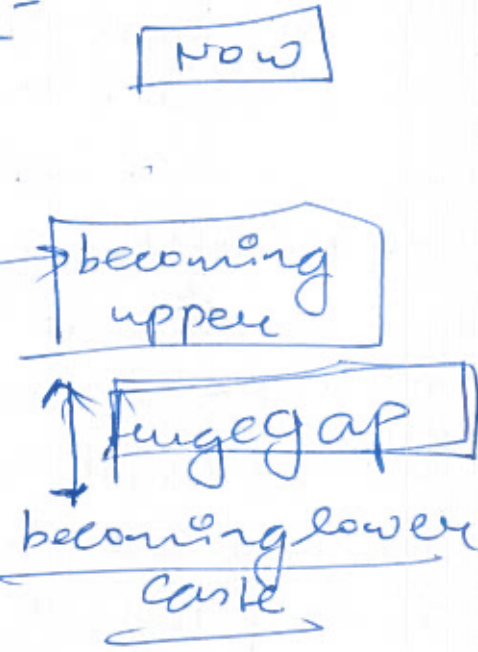 NOW
becoming
upper
hugegap
becoming lower
caste